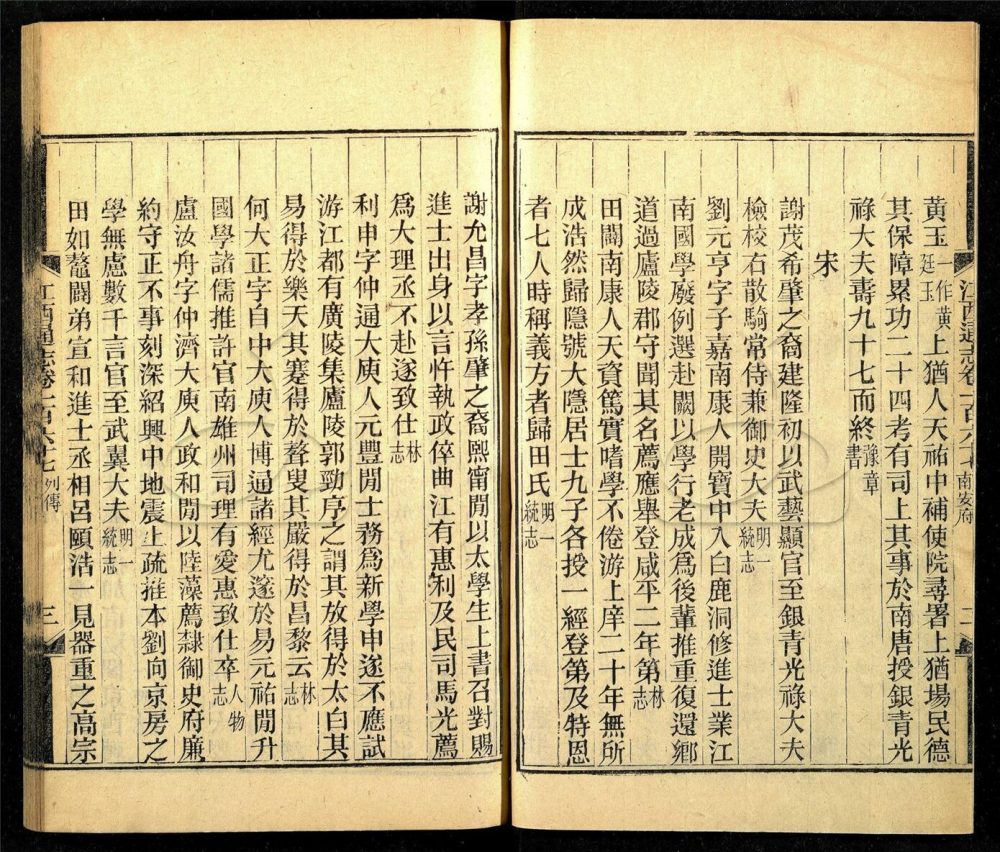 江西通志卷一百六十七 南安府
黃玉一作黃廷玉上猶人天祐中補使院尋署上猶場民德
其保障累功二十四考有司上其事於南唐授銀青光
祿大夫壽九十七而終豫章書
宋
謝茂希肇之裔建隆初以武藝顯官至銀青光祿大夫
檢校右散騎常侍兼御史大夫明一統志
劉元亨字子嘉南康人開寶中入白鹿洞修進士業江
南國學廢例選赴闕以學行老成爲後輩推重復還鄉
道過廬陵郡守聞其名薦應舉登咸平二年第林志
田闢南康人天資篤實嗜學不倦游上庠二十年無所
成浩然歸隱號大隱居士九子各授一經登第及特恩
者七人時稱義方者歸田氏明一統志
謝允昌字孝孫肇之裔熙甯閒以太學生上書召對賜
進士出身以言忤執政倅曲江有惠利及民司馬光薦
爲大理丞不赴遂致仕林志
利申字仲通大庾人元豐閒士務爲新學申遂不應試
游江都有廣陵集廬陵郭勁序之謂其放得於太白其
易得於樂天其蹇得於聱叟其嚴得於昌黎云林志
何大正字自中大庾人博通諸經尤邃於易元祐閒升
國學諸儒推許官南雄州司理有愛惠致仕卒人物志
盧汝舟字仲濟大庾人政和閒以陸藻薦隸御史府廉
約守正不事刻深紹興中地震上疏推本劉向京房之
學無慮數千言官至武翼大夫明一統志
田如鼇闢弟宣和進士丞相呂頤浩一見器重之高宗
江西通志卷一百六十七 列傳 三